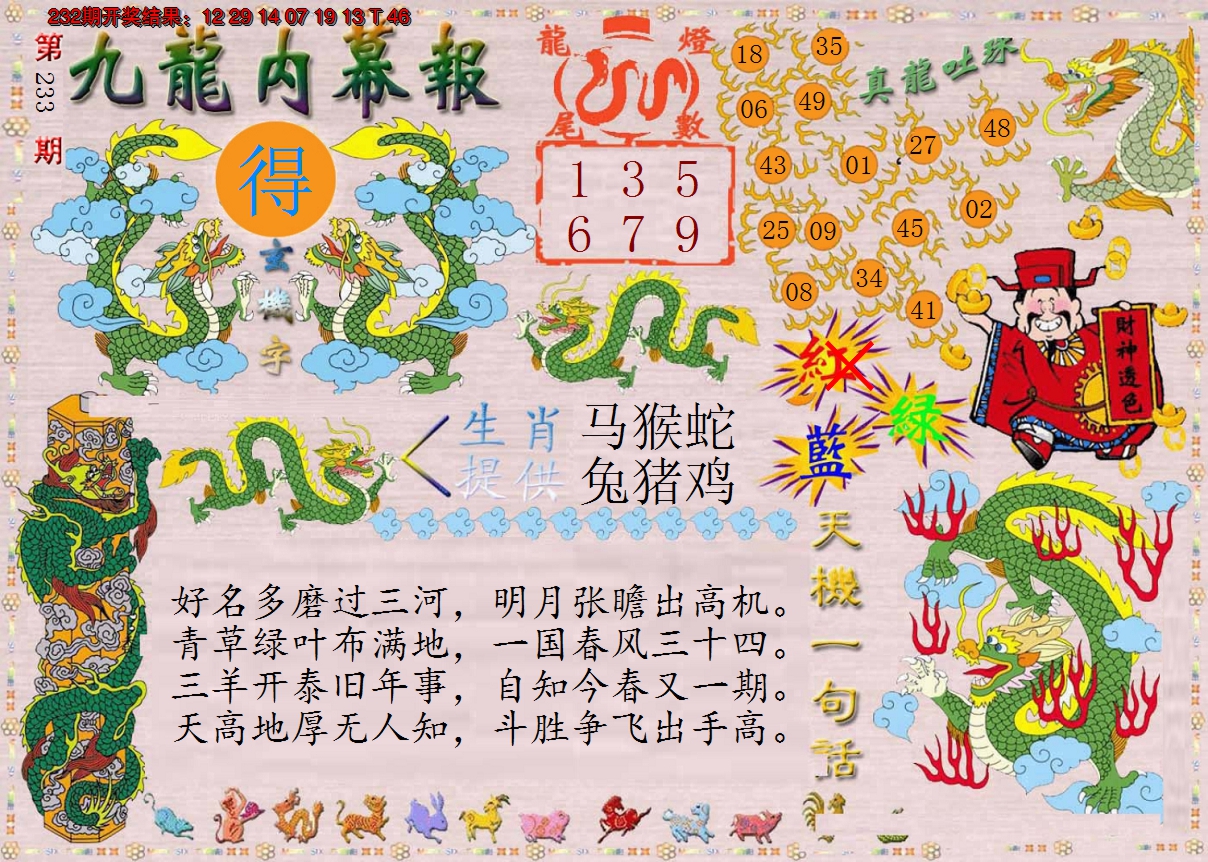 232期开奖结果：12 29 14 07 19 13 T 46
第233期
九龍内幕報
得
玄機字
龍燈尾數
1 3 5
6 7 9
真龍吐珠
18 35
06 49
27 48
43 01
02
25 09 45
34
08
41
財神透色
紅
綠
藍
生肖 马猴蛇
提供 兔猪鸡
天機一句話
好名多磨过三河，明月张瞻出高机。
青草绿叶布满地，一国春风三十四。
三羊开泰旧年事，自知今春又一期。
天高地厚无人知，斗胜争飞出手高。